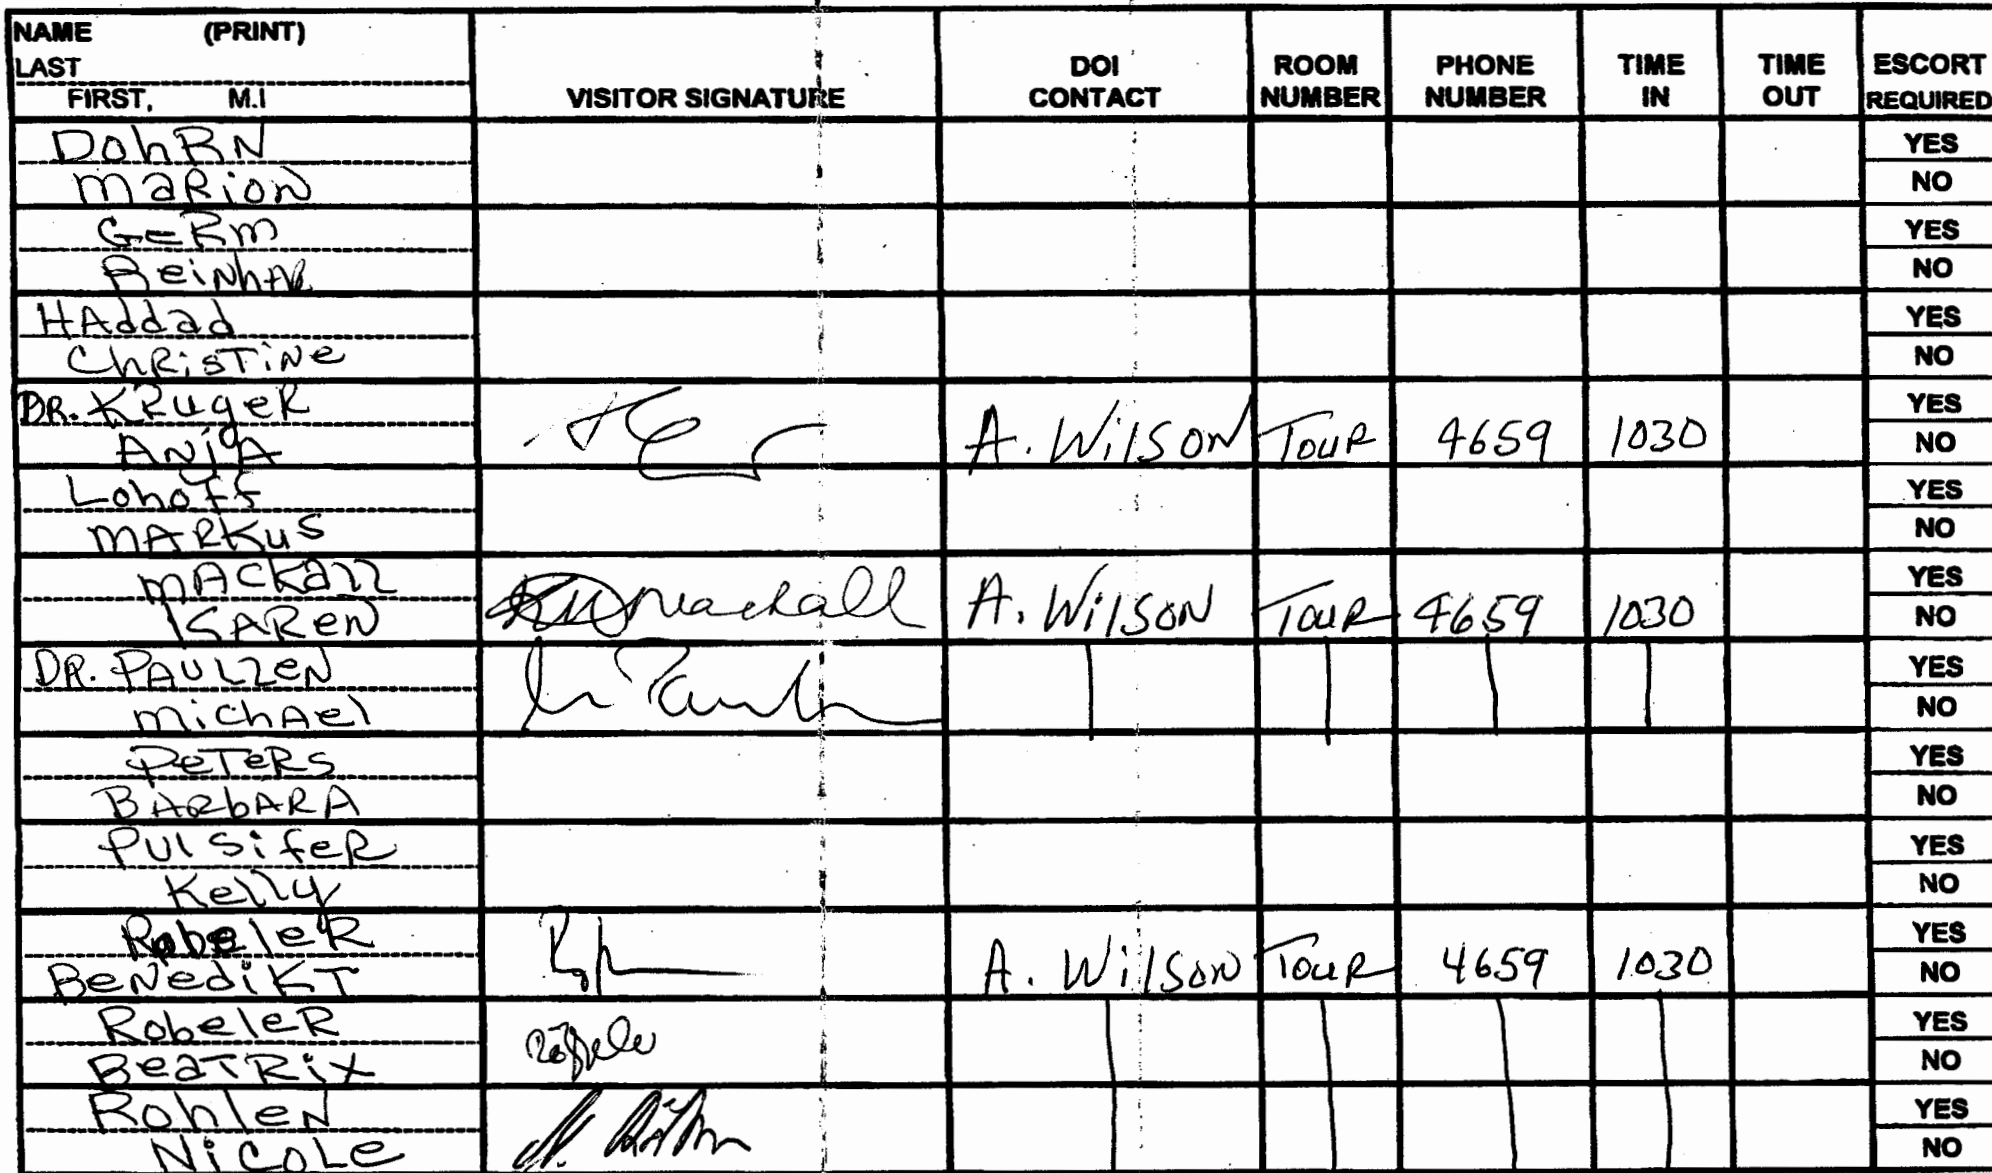 NAME (PRINT)
LAST
FIRST, M.I
VISITOR SIGNATURE
DOI CONTACT
ROOM NUMBER
PHONE NUMBER
TIME IN
TIME OUT
ESCORT REQUIRED
DohRN YES
MaRioN NO
GeRm YES
ReiNhAR NO
HAddad YES
ChRisTiNe NO
DR. KRugeR YES
ANjA A. WilSON TouR 4659 1030 NO
Lohoff YES
MARKuS NO
mACKall YES
KAReN Mackall A. WilSON TouR 4659 1030 NO
DR. PAULZEN YES
michAel NO
PeTeRS YES
BARbARA NO
PulSifeR YES
Kelly NO
RobeleR YES
BeNediKT A. WilSON TouR 4659 1030 NO
RobeleR YES
BeaTRiX NO
RohleN YES
NiCOLe NO